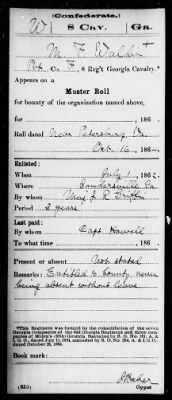 (Confederate.)
W | 8 Cav. | Ga.
M. F. Waldin
Pvt, Co. F, 8 Reg't Georgia Cavalry.*
Appears on a
Muster Roll
for bounty of the organization named above,
for 186 .
Roll dated Near Petersburg, Va.
Oct. 16, 186
Enlisted:
When July 1, 186 2.
Where Sandersville Ga
By whom Maj J. R. Griffin
Period 3 years.
Last paid:
By whom Capt Howell
To what time , 186 .
Present or absent Not stated
Remarks: Entitled to bounty, never
being absent without leave.
*This Regiment was formed by the consolidation of the seven
Georgia Companies of the 62d Georgia Regiment and three
Book mark:
(635) Copyist.